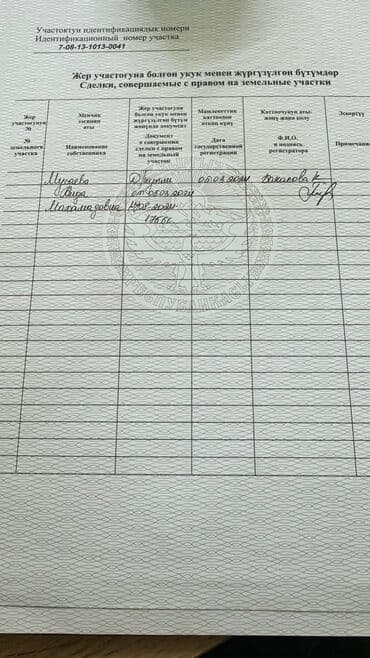 Участоктун идентификациялык номери
Идентификационный номер участка
7-08-13-1013-0041
Жер участогуна болгон укук менен жүргүзүлгөн бүтүмдөр
Сделки, совершаемые с правом на земельные участки
Жер участогунун №
№ земельного участка
Менчик ээсинин аты
Наименование собственника
Жер участогуна болгон укук менен жүргүзүлгөн бүтүм жөнүндө документ
Документ о совершении сделки с правом на земельный участок
Мамлекеттик каттоодон өткөн күнү
Дата государственной регистрации
Каттоочунун аты-жөнү жана колу
Ф.И.О. и подпись регистратора
Эскертүү
Примечание
Мусаева
05.03.2024
от 05.03.2024
РЕСПУБЛИКАСЫ